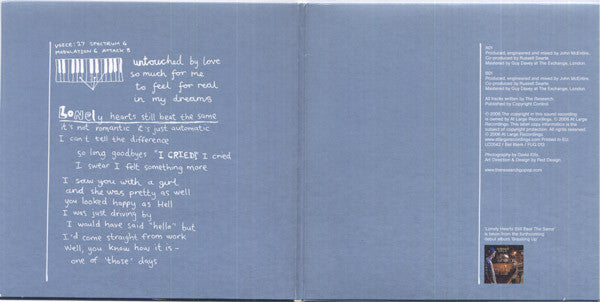 VOICE: 27 SPECTRUM 6
MODULATION 6 ATTACK 8
untouched by love
so much for me
to feel for real
in my dreams
LONELY hearts still beat the same
it's not romantic it's just automatic
I can't tell the difference
so long goodbyes "I CRIED" I cried
I swear I felt something more
I saw you with a girl
and she was pretty as well
you looked happy as Hell
I was just driving by
I would have said "hello" but
I'd come straight from work
well, you know how it is -
one of 'those' days
Produced, engineered and mixed by John McEntire.
Co-produced by Russell Searle.
Mastered by Guy Davey at The Exchange, London.
Produced, engineered and mixed by John McEntire.
Co-produced by Russell Searle.
Mastered by Guy Davey at The Exchange, London.
All tracks written by The Research.
Published by Copyright Control.
℗ 2006 The copyright in this sound recording
is owned by At Large Recordings. © 2006 At Large
Recordings. This label copy information is the
subject of copyright protection. All rights reserved.
© 2006 At Large Recordings.
Photography by David Ellis.
Art Direction & Design by Red Design.
www.theresearchgopop.com
'Lonely Hearts Still Beat The Same'
is taken from the forthcoming
debut album 'Breaking Up'